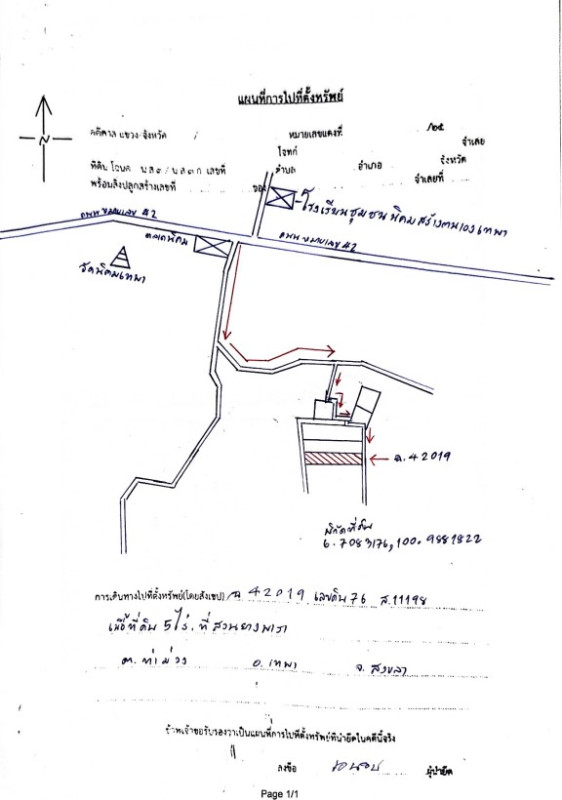 แผนที่การไปที่ตั้งทรัพย์
N
คดีศาล แขวง-จังหวัด หมายเลขแดงที่ /๒๕
โจทก์ จำเลย
ที่ดิน โฉนด น.ส.๓ / น.ส.๓ ก. เลขที่ ตำบล อำเภอ จังหวัด
พร้อมสิ่งปลูกสร้างเลขที่ ของ จำเลยที่
โรงเรียนชุมชนนิคมสร้างตนเองเทพา
ถนนหมายเลข 42
ตลาดนิคม
ถนนหมายเลข 42
วัดนิคมเทพา
ฉ.42019
พิกัดที่ดิน
6.7083176,100.9881822
การเดินทางไปที่ตั้งทรัพย์(โดยสังเขป) ฉ 42019 เลขดิน 76 ส.11198
เนื้อที่ดิน 5 ไร่. ที่สวนยางพารา
ต. ท่าม่วง อ. เทพา จ. สงขลา
ข้าพเจ้าขอรับรองว่าเป็นแผนที่การไปที่ตั้งทรัพย์ที่นำยึดในคดีนี้จริง
ลงชื่อ ผู้นำยึด
Page 1/1